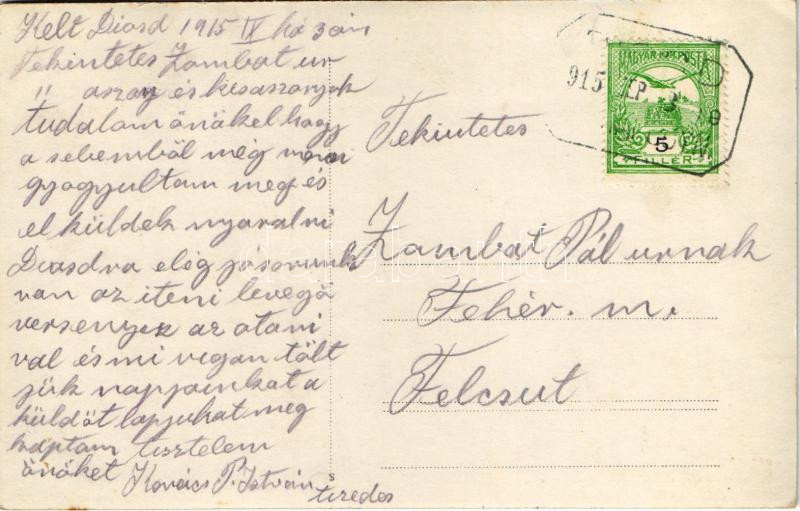 Kelt Diosd 1915 IX hó 3án
Tekintetes Zambat ur
" aszony és kisaszonyok
tudatom önökel hogy
a sebemböl még nem
gyogyultam meg és
el küldek nyaralni
Diosdra elég jó sorunk
van az iteni levegö
versenyez az otani
val és mi vigan tölt
jük napjainkat a
küldöt lapjukat meg
kaptam tisztelem
önöket Kovács P. István
tizedes
MAGYAR KIR. POSTA
915
5
FILLÉR
Tekintetes
Zambat Pál urnak
Fehér. m.
Felcsut